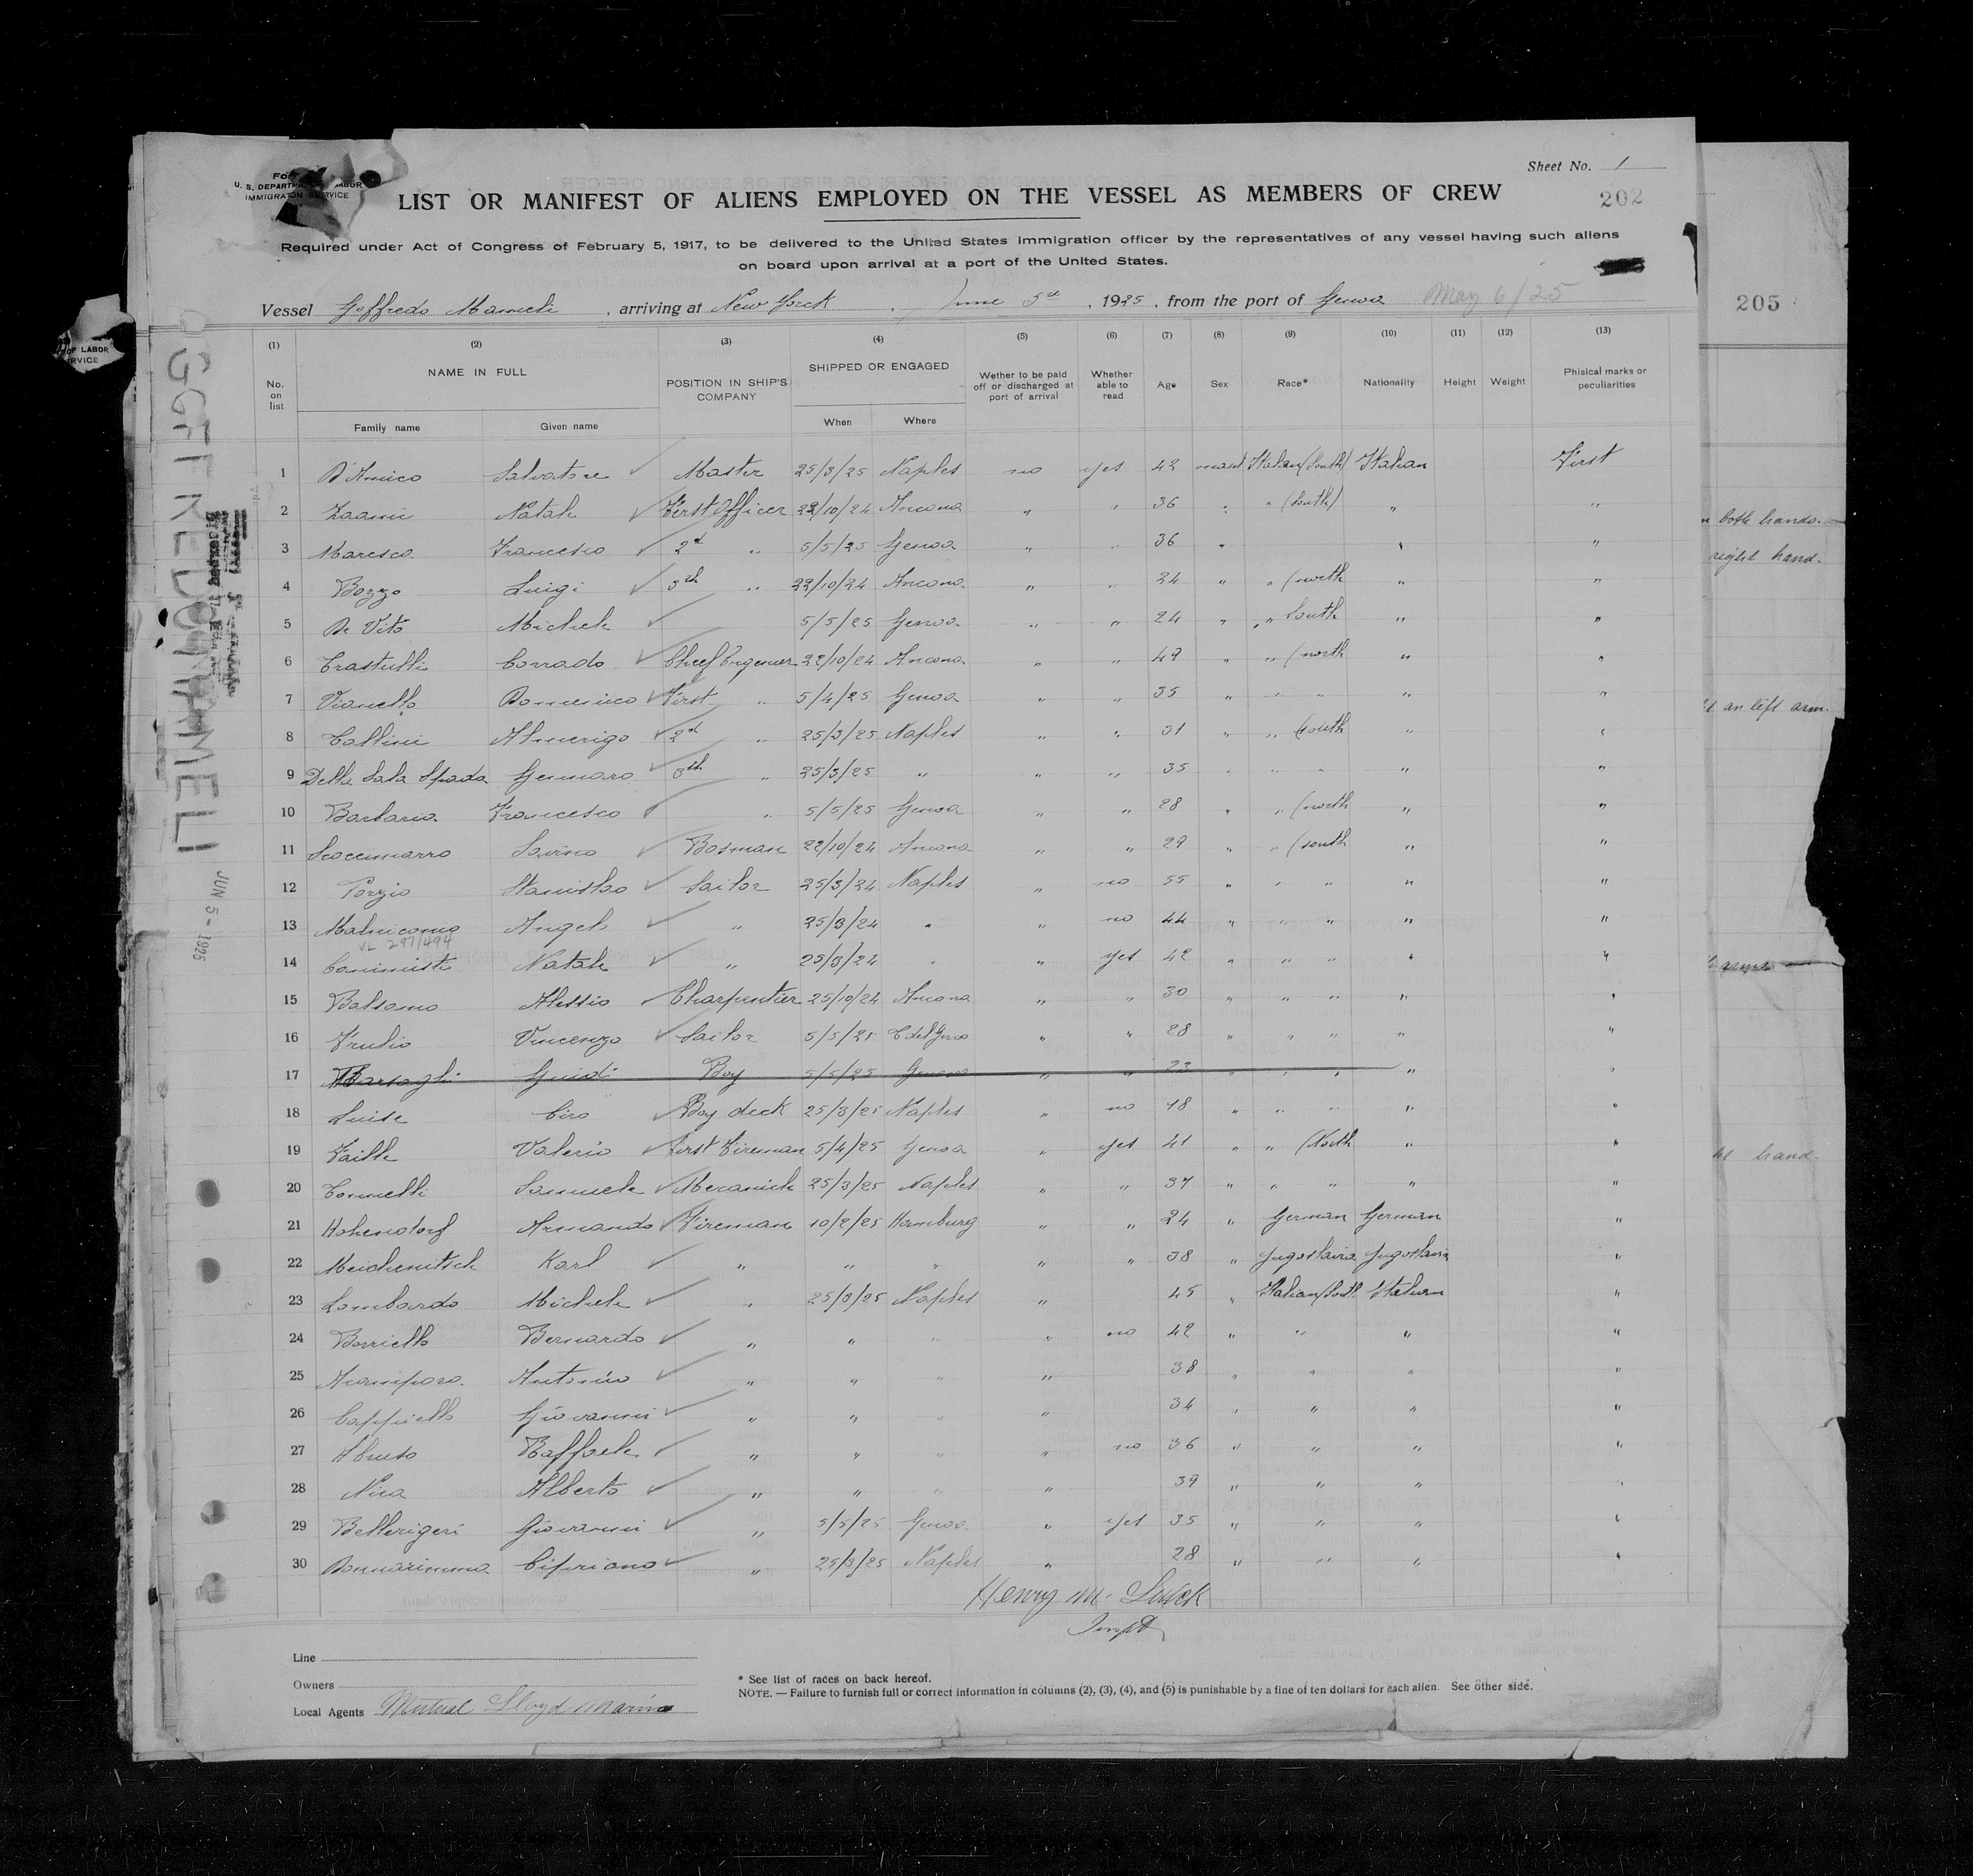 Sheet No. 1
202
U. S. DEPARTMENT LABOR
IMMIGRATION SERVICE
LIST OR MANIFEST OF ALIENS EMPLOYED ON THE VESSEL AS MEMBERS OF CREW
Required under Act of Congress of February 5, 1917, to be delivered to the United States immigration officer by the representatives of any vessel having such aliens
on board upon arrival at a port of the United States.
Vessel Goffredo Mameli , arriving at New Yorck , June 5th , 1925 , from the port of Genoa May 6/25
205
OF LABOR
(1) (2) (3) (4) (5) (6) (7) (8) (9) (10) (11) (12) (13)
No. on list NAME IN FULL POSITION IN SHIP'S COMPANY SHIPPED OR ENGAGED Wether to be paid off or discharged at port of arrival Whether able to read Age Sex Race* Nationality Height Weight Phisical marks or peculiarities
Family name Given name When Where
1 D'Amico Salvatore Master 25/3/25 Naples no yes 42 Italian (South) Italian First
2 Natale First Officer 22/10/24 Ancona " " 36 " " (South) " "
3 Maresca Francesco 2d " 5/5/25 Genoa " " 36 " " "
4 Bozzo Luigi 3th " 22/10/24 Ancona " " 24 " " (north " "
5 De Vito Michele 5/5/25 Genoa " " 24 " " South " "
6 Trastulli Corrado Chief Engeneer 22/10/24 Ancona " " 47 " " (north " "
7 Vianello Domenico First " 5/4/25 Genoa " " 35 " " " " "
8 Almerigo 2d " 25/3/25 Naples " " 31 " " South " "
9 Della Sala Spada Gennaro 3th " 25/3/25 " " " 35 " " " " "
10 Barbaria Francesco " 5/5/25 Genoa " " 28 " " (north " "
11 Scoccimarro Savino Bosman 22/10/24 Ancona " " 29 " " (south " "
12 Porzio Stanislao Sailor 25/3/24 Naples " no 55 " " " " "
13 Malinconico Angelo " 25/3/24 " " no 44 " " " " "
VL 297/494
14 Natale " 25/3/24 " " yes 42 " " " " "
15 Balsamo Alessio Charpentier 25/10/24 Ancona " " 30 " " " " "
16 Vincenzo Sailor 5/5/25 " " 28 " " " " "
17 Guido Boy 5/5/25 Genoa " " 23 " " " " "
18 Luise Ciro Boy deck 25/3/25 Naples " no 18 " " " " "
19 Valerio First Fireman 5/4/25 Genoa " yes 41 " " (North " "
20 Samuele Mecanich 25/3/25 Naples " " 37 " " " " "
21 Hohendorf Armando Fireman 10/2/25 Hamburg " " 24 " German German "
22 Meichenitsch Karl " " " " " 38 " Jugoslavia Jugoslavia "
23 Lombardo Michele " 25/3/25 Naples " 45 " Italian South Italian "
24 Borriello Bernardo " " " " no 42 " " " "
25 Acampora Antonio " " " " 38 " " " "
26 Cappiello Giovanni " " " " 34 " " " "
27 Raffaele " " " " no 36 " " " "
28 Alberto " " " " 39 " " " "
29 Bellerigeri Giovanni " 5/5/25 Genoa " yes 35 " " " "
30 Donnarumma Cipriano " 25/3/25 Naples " 28 " " " "
Henry M.
Inspt
GOFFREDO MAMELI
JUN 5 - 1925
both hands.
right hand.
an left arm.
hand.
Line
Owners
Local Agents Mutual Lloyd Marine
* See list of races on back hereof.
NOTE. — Failure to furnish full or correct information in columns (2), (3), (4), and (5) is punishable by a fine of ten dollars for each alien. See other side.